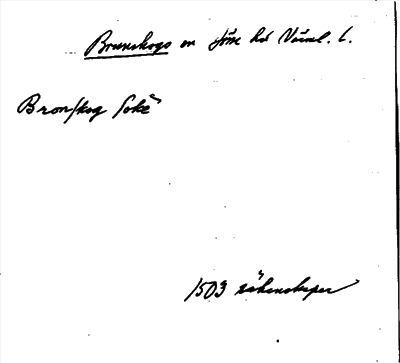 Brunskogs sn Jösse hd Värml. l.
Bronskog sokē
1503 räkenskaper